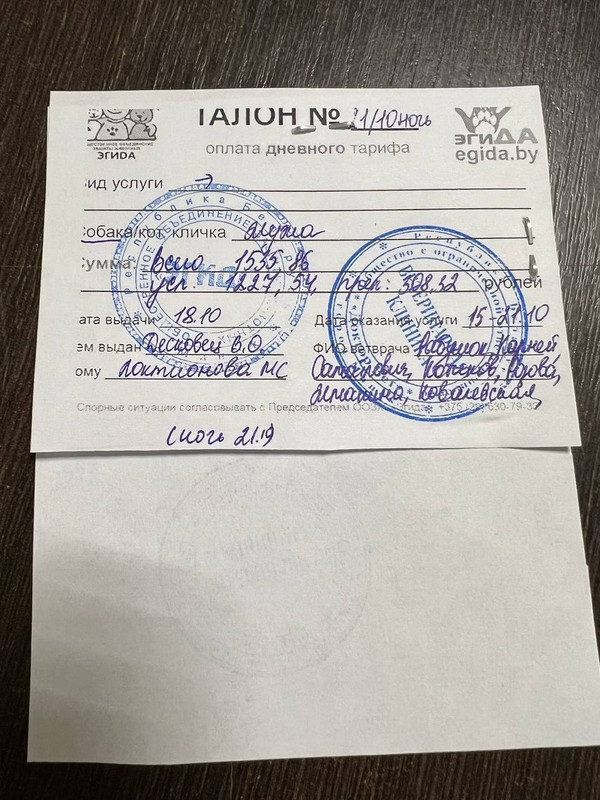 ТАЛОН № 11/10ночь
ЭГИДА
оплата дневного тарифа
ЭГИДА
egida.by
ид услуги
обака/кот, кличка
умма: Всего 1535,86
усл. 1227,54, преп: 308,32 рублей
ата выдачи 18.10 Дата оказания услуги 15-27.10
ем выдан Десковец В.О. ФИО ветврача
ому Локтионова МС Самойлович, Потенков,
Ковалевская,
Спорные ситуации согласовывать с Председателем
+375 (29) 630-79-
(ночь 21.19